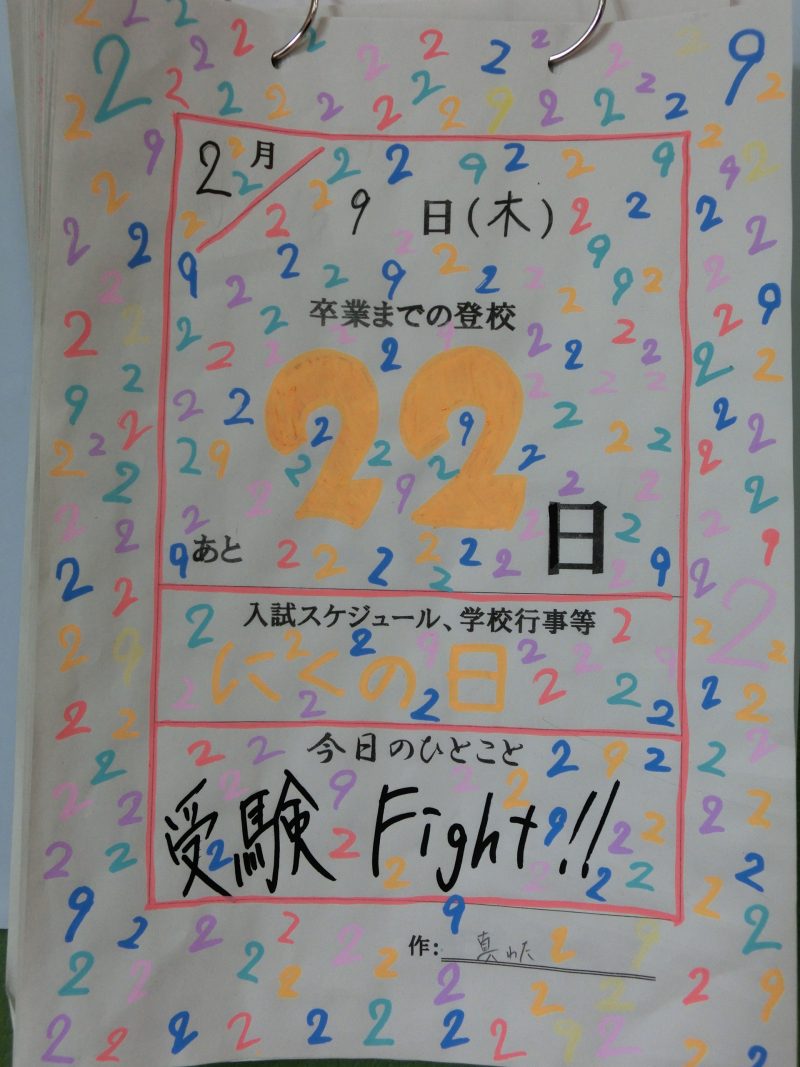 2月
9日(木)
卒業までの登校
22
あと
日
入試スケジュール、学校行事等
にくの日
今日のひとこと
受験 Fight!!
作: